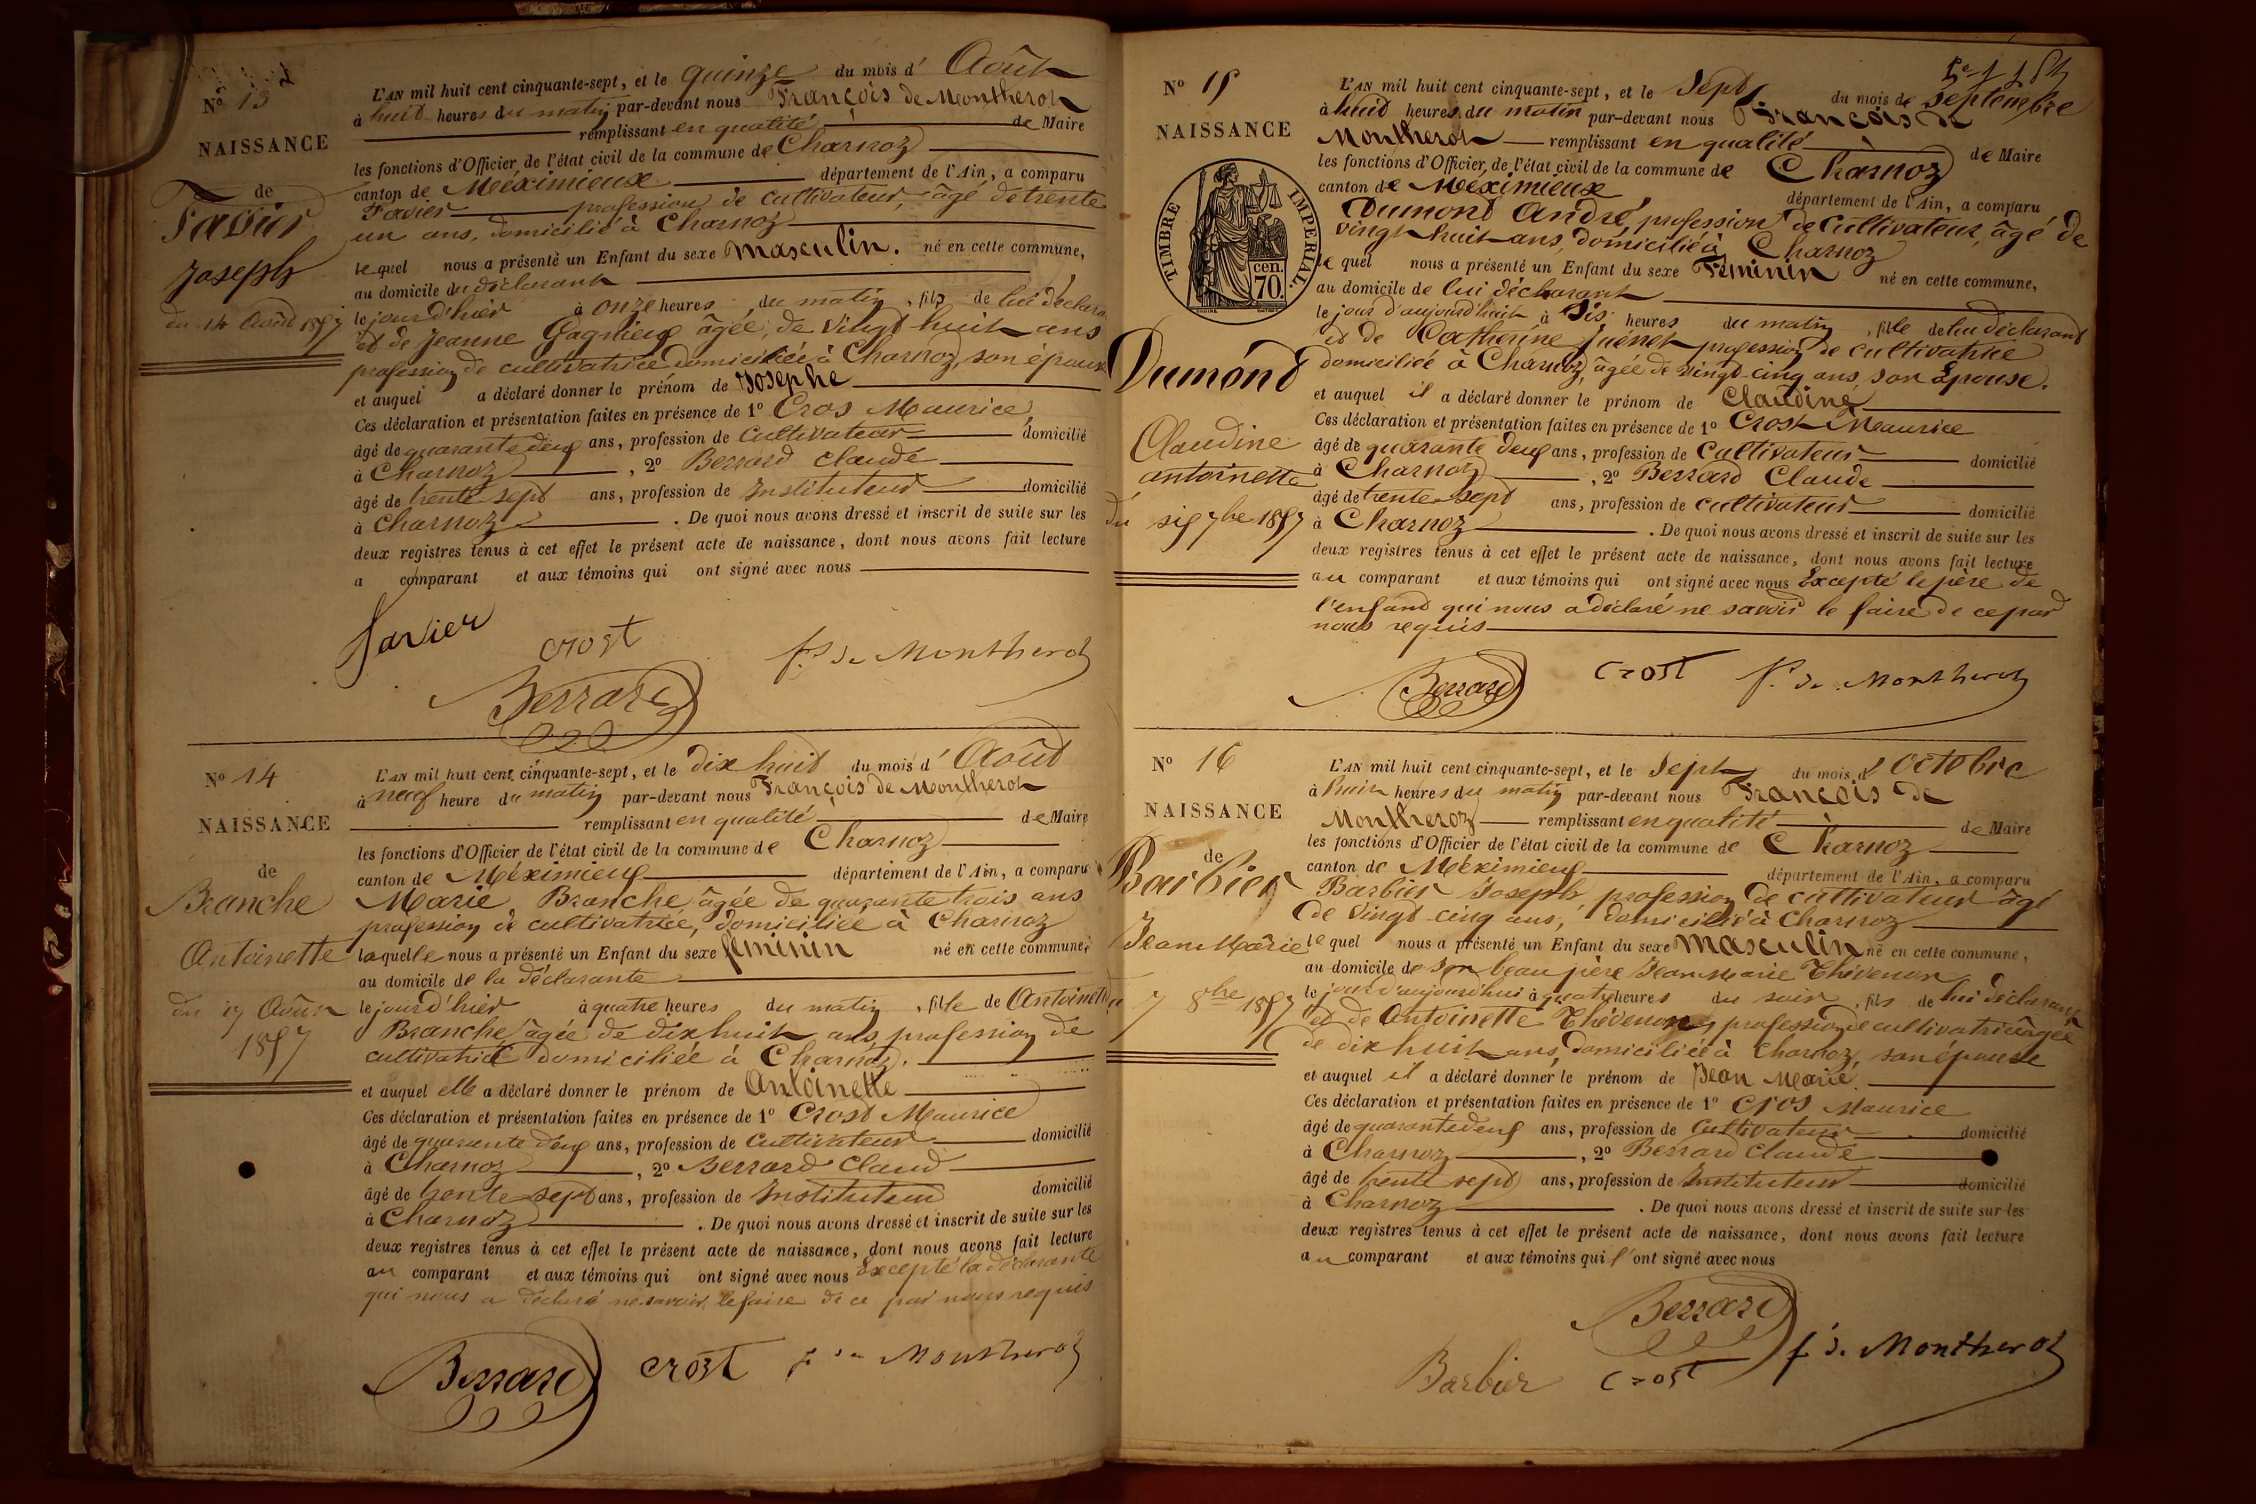 Nº 13
NAISSANCE
de
Favier
Joseph
du 14 Août 1857
L'AN mil huit cent cinquante-sept, et le quinze du mois d' Août
à huit heures du matin par-devant nous François de Montherot
remplissant en qualité de Maire
les fonctions d'Officier de l'état civil de la commune de Charnoz
canton de Méximieux département de l'Ain, a comparu
Favier profession de cultivateur, âgé de trente
un ans, domicilié à Charnoz
lequel nous a présenté un Enfant du sexe masculin. né en cette commune,
au domicile du déclarant
le jour d'hier à onze heures du matin, fils de lui déclarant
et de Jeanne Gagnieux âgée de vingt huit ans
profession de cultivatrice domiciliée à Charnoz, son épouse
et auquel a déclaré donner le prénom de Josephe
Ces déclaration et présentation faites en présence de 1º Cros Maurice
âgé de quarante deux ans, profession de Cultivateur domicilié
à Charnoz, 2º Berrard claude
âgé de trente sept ans, profession de Instituteur domicilié
à Charnoz. De quoi nous avons dressé et inscrit de suite sur les
deux registres tenus à cet effet le présent acte de naissance, dont nous avons fait lecture
a comparant et aux témoins qui ont signé avec nous
favier
crost
f. de Montherot
Berrard
Nº 14
NAISSANCE
de
Branche
Antoinette
du 17 Août
1857
L'AN mil huit cent cinquante-sept, et le dix huit du mois d' Août
à neuf heure du matin par-devant nous François de Montherot
remplissant en qualité de Maire
les fonctions d'Officier de l'état civil de la commune de Charnoz
canton de Méximieux département de l'Ain, a comparu
Marie Branche âgée de quarante trois ans
profession de cultivatrice, domiciliée à Charnoz
laquelle nous a présenté un Enfant du sexe féminin né en cette commune,
au domicile de la déclarante
le jour d'hier à quatre heures du matin, fille de Antoinette
Branche âgée de dix huit ans, profession de
cultivatrice domiciliée à Charnoz.
et auquel elle a déclaré donner le prénom de Antoinette
Ces déclaration et présentation faites en présence de 1º Crost Maurice
âgé de quarante deux ans, profession de Cultivateur domicilié
à Charnoz, 2º Berrard Claud
âgé de trente sept ans, profession de Instituteur domicilié
à Charnoz. De quoi nous avons dressé et inscrit de suite sur les
deux registres tenus à cet effet le présent acte de naissance, dont nous avons fait lecture
au comparant et aux témoins qui ont signé avec nous Excepté la déclarante
qui nous a déclaré ne savoir le faire de ce par nous requis
Berrard
crost
f. de Montherot
Nº 15
NAISSANCE
TIMBRE IMPERIAL.
70. cen.
Dumond
Claudine
antoinette
du six 7bre 1857
L'AN mil huit cent cinquante-sept, et le Sept du mois de Septembre
à huit heures du matin par-devant nous François de
Montherot remplissant en qualité de Maire
les fonctions d'Officier de l'état civil de la commune de Charnoz
canton de Méximieux département de l'Ain, a comparu
Dumond André, profession de Cultivateur, âgé de
vingt huit ans, domicilié à Charnoz
lequel nous a présenté un Enfant du sexe Féminin né en cette commune,
au domicile de lui déclarant
le jour d'aujourd'huit à Sis heures du matin, fille de lui déclarant
et de Catherine Juénet profession de cultivatrice
domiciliée à Charnoz, âgée de vingt cinq ans, son Epouse.
et auquel il a déclaré donner le prénom de Claudine
Ces déclaration et présentation faites en présence de 1º Crost Meaurice
âgé de quarante deux ans, profession de Cultivateur domicilié
à Charnoz, 2º Berrard Claude
âgé de trente sept ans, profession de cultivateur domicilié
à Charnoz. De quoi nous avons dressé et inscrit de suite sur les
deux registres tenus à cet effet le présent acte de naissance, dont nous avons fait lecture
au comparant et aux témoins qui ont signé avec nous Excepté le père de
l'enfant qui nous a déclaré ne savoir le faire de ce par
nous requis
Berrard
crost
f. de Montherot
Nº 16
NAISSANCE
de
Barbier
Jean Marie
7 8bre 1857
L'AN mil huit cent cinquante-sept, et le Sept du mois d' Octobre
à huit heures du matin par-devant nous François de
Montherot remplissant en qualité de Maire
les fonctions d'Officier de l'état civil de la commune de Charnoz
canton de Méximieux département de l'Ain, a comparu
Barbier Joseph, profession de cultivateur âgé
de vingt cinq ans, domicilié à Charnoz
lequel nous a présenté un Enfant du sexe masculin né en cette commune,
au domicile de son beau père Jean Marie Thévenon
le jour d'aujourd'hui à quatre heures du soir, fils de lui déclarant
et de Antoinette Thévenon, profession de cultivatrice âgée
de dix huit ans, domiciliée à Charnoz, son épouse
et auquel il a déclaré donner le prénom de Jean Marie.
Ces déclaration et présentation faites en présence de 1º Cros Maurice
âgé de quarante deux ans, profession de Cultivateur domicilié
à Charnoz, 2º Berrard Claude
âgé de trente sept ans, profession de Instituteur domicilié
à Charnoz. De quoi nous avons dressé et inscrit de suite sur les
deux registres tenus à cet effet le présent acte de naissance, dont nous avons fait lecture
au comparant et aux témoins qui l'ont signé avec nous
Berrard
Barbier
crost
f. de Montherot